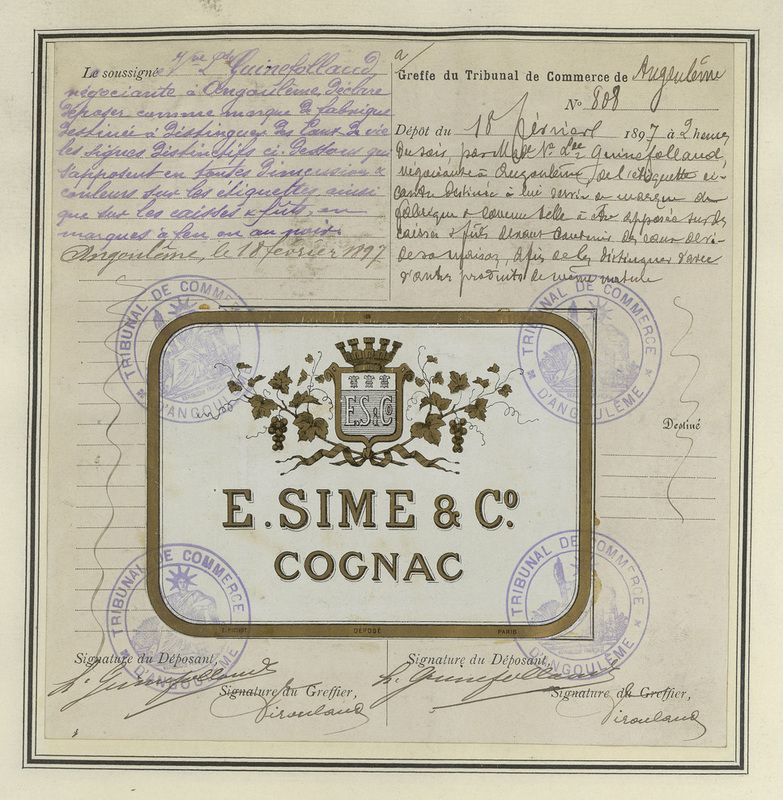 Le soussigné Vve Ld Guinefollaud
négociante à Angoulême, déclare
déposer comme marque de fabrique
destinée à distinguer des Eaux de vie
les signes distinctifs ci-dessous qui
s'apposent en toutes dimensions &
couleurs sur les étiquettes ainsi
que sur les caisses & fûts, en
marques à feu ou au noir.
Angoulême, le 18 février 1897
Greffe du Tribunal de Commerce de Angoulême
No 808
Dépot du 18 février 1897 à 2 heures
du soir, par Guinefollaud,
négociante à Angoulême, de l'étiquette ci-
contre destinée à lui servir de marque de
fabrique & comme telle à être apposée sur des
caisses & fûts devant contenir des eaux de vie
de sa maison, afin de les distinguer d'avec
d'autres produits de même nature
TRIBUNAL DE COMMERCE D'ANGOULÊME
TRIBUNAL DE COMMERCE D'ANGOULÊME
E.S & Co
Destiné
E. SIME & Co.
COGNAC
TRIBUNAL DE COMMERCE D'ANGOULÊME
TRIBUNAL DE COMMERCE D'ANGOULÊME
DÉPOSÉ
PARIS
Signature du Déposant,
Signature du Déposant,
L. Guinefollaud
L. Guinefollaud
Signature du Greffier,
Signature du Greffier,